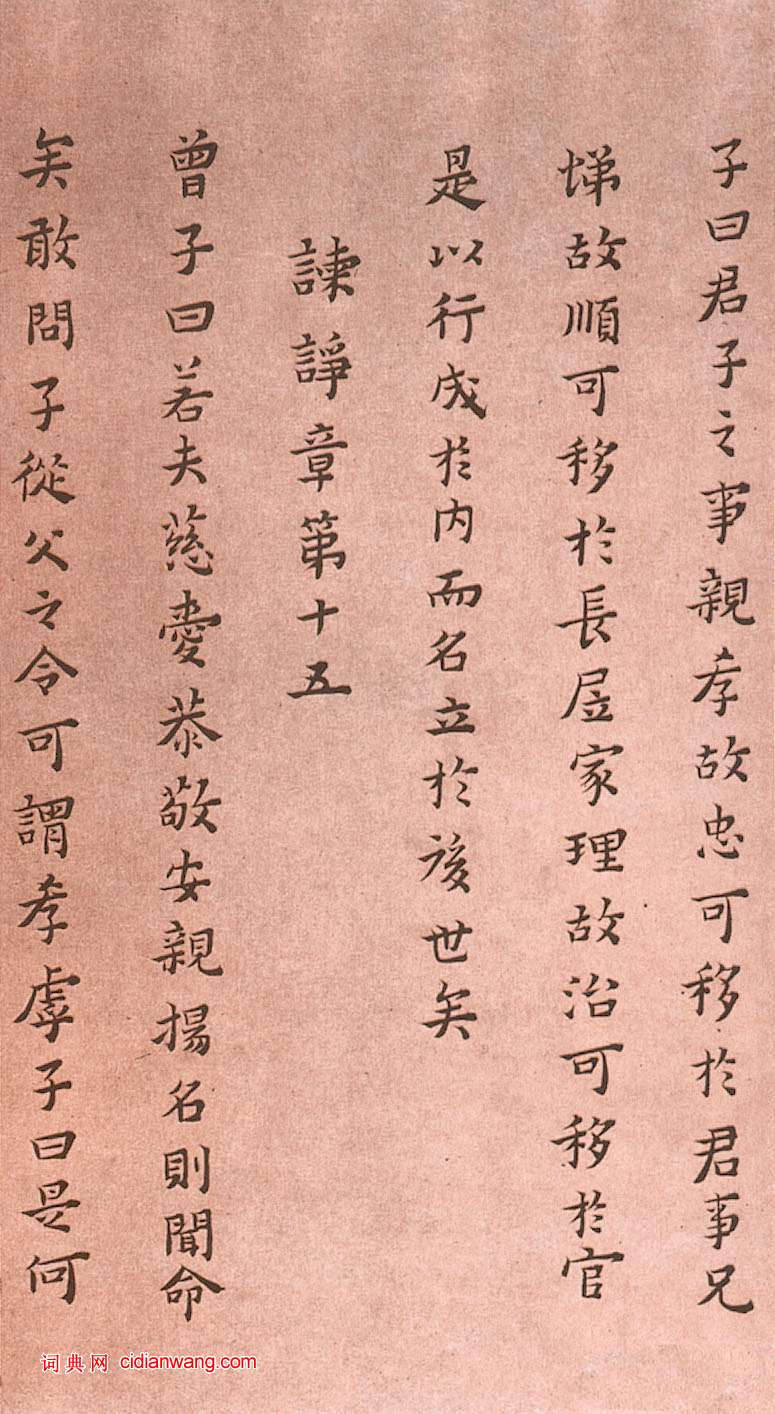 子曰君子之事親孝故忠可移於君事兄
悌故順可移於長居家理故治可移於官
是以行成於内而名立於後世矣
諫諍章第十五
曾子曰若夫慈愛恭敬安親揚名則聞命
矣敢問子從父之令可謂孝虖子曰是何
词典网 cidianwang.com